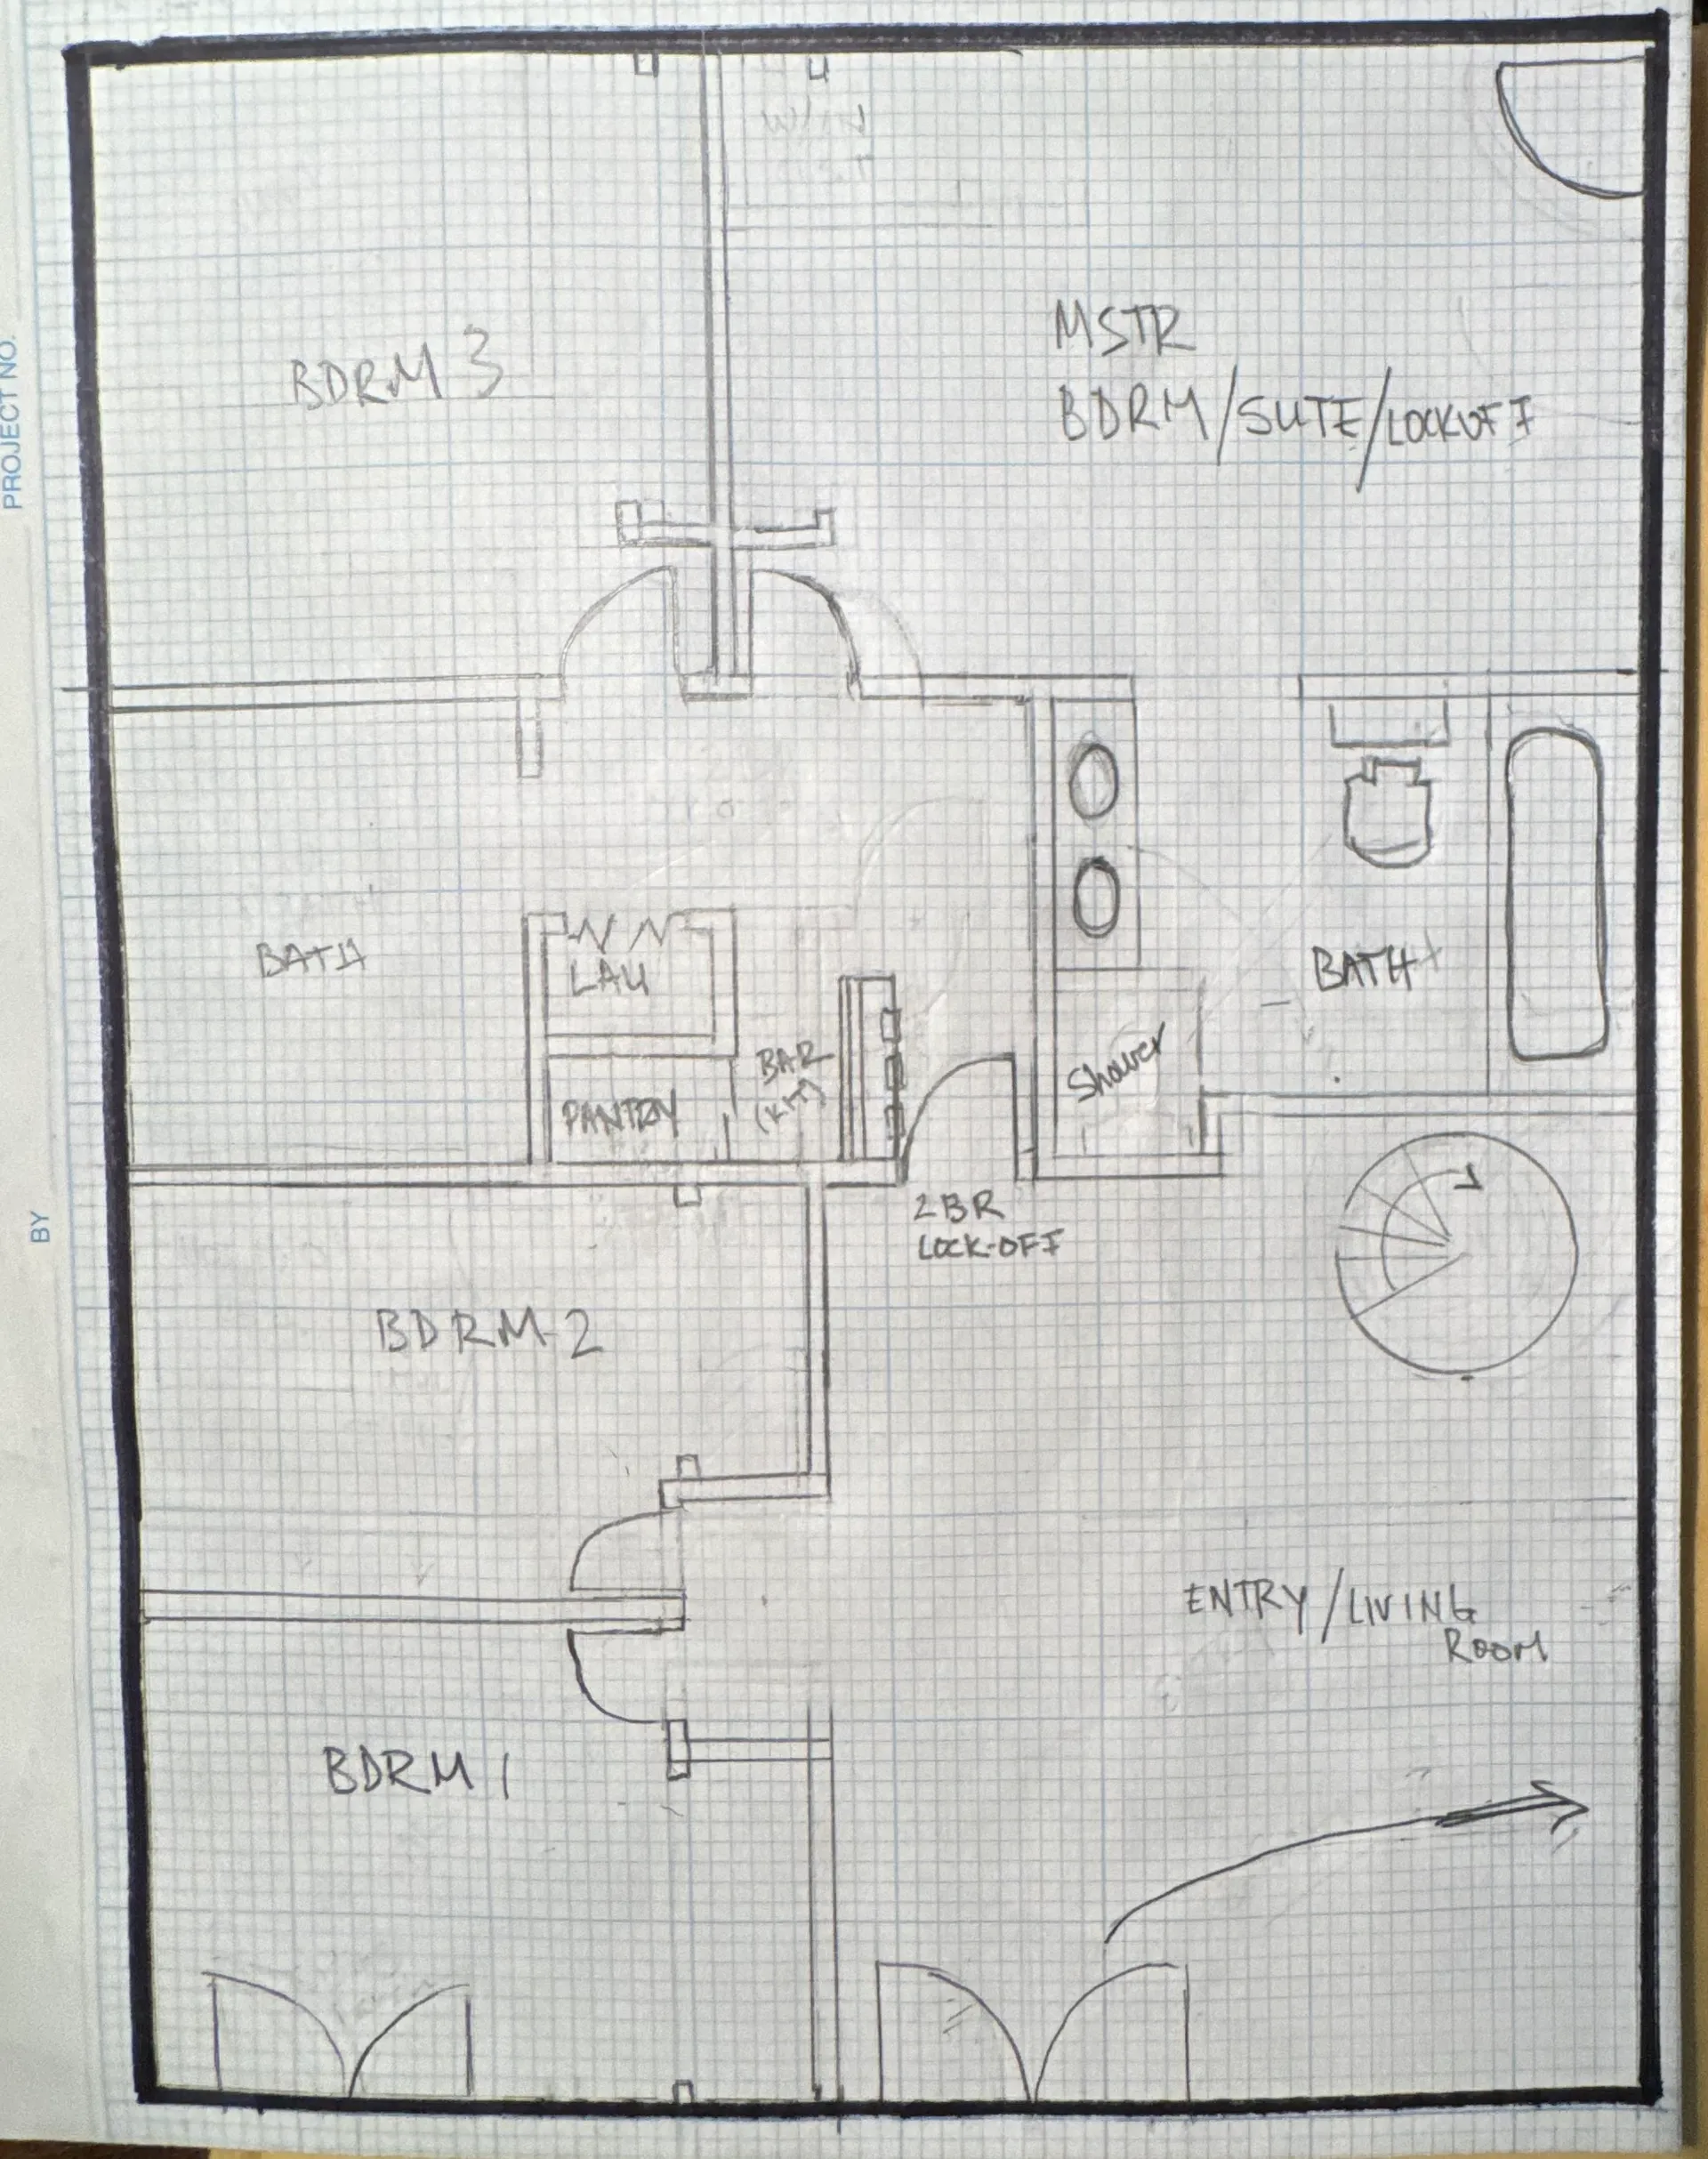 PROJECT NO.
BY
BDRM 3
MSTR
BDRM/SUTE/LOCKOFF
BATH
LAU
PANTRY
BAR
(KIT)
Shower
BATH
2BR
LOCK-OFF
BDRM-2
ENTRY/LIVING
ROOM
BDRM 1